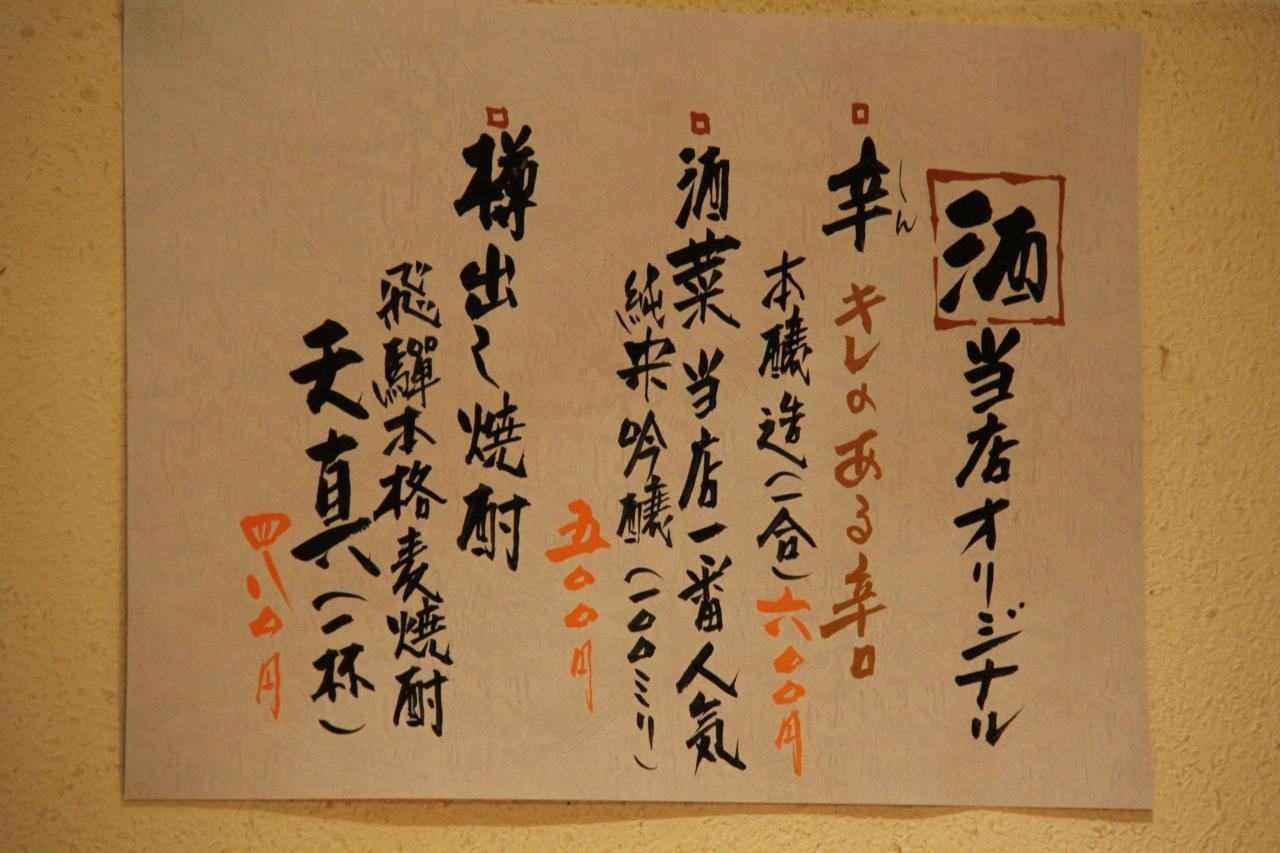 酒 当店オリジナル
辛 キレのある辛口
しん
本醸造(一合)六〇〇円
酒菜 当店一番人気
純米吟醸(一〇〇ミリ)
五〇〇円
樽出し焼酎
飛騨本格麦焼酎
天真(一杯)
四八〇円